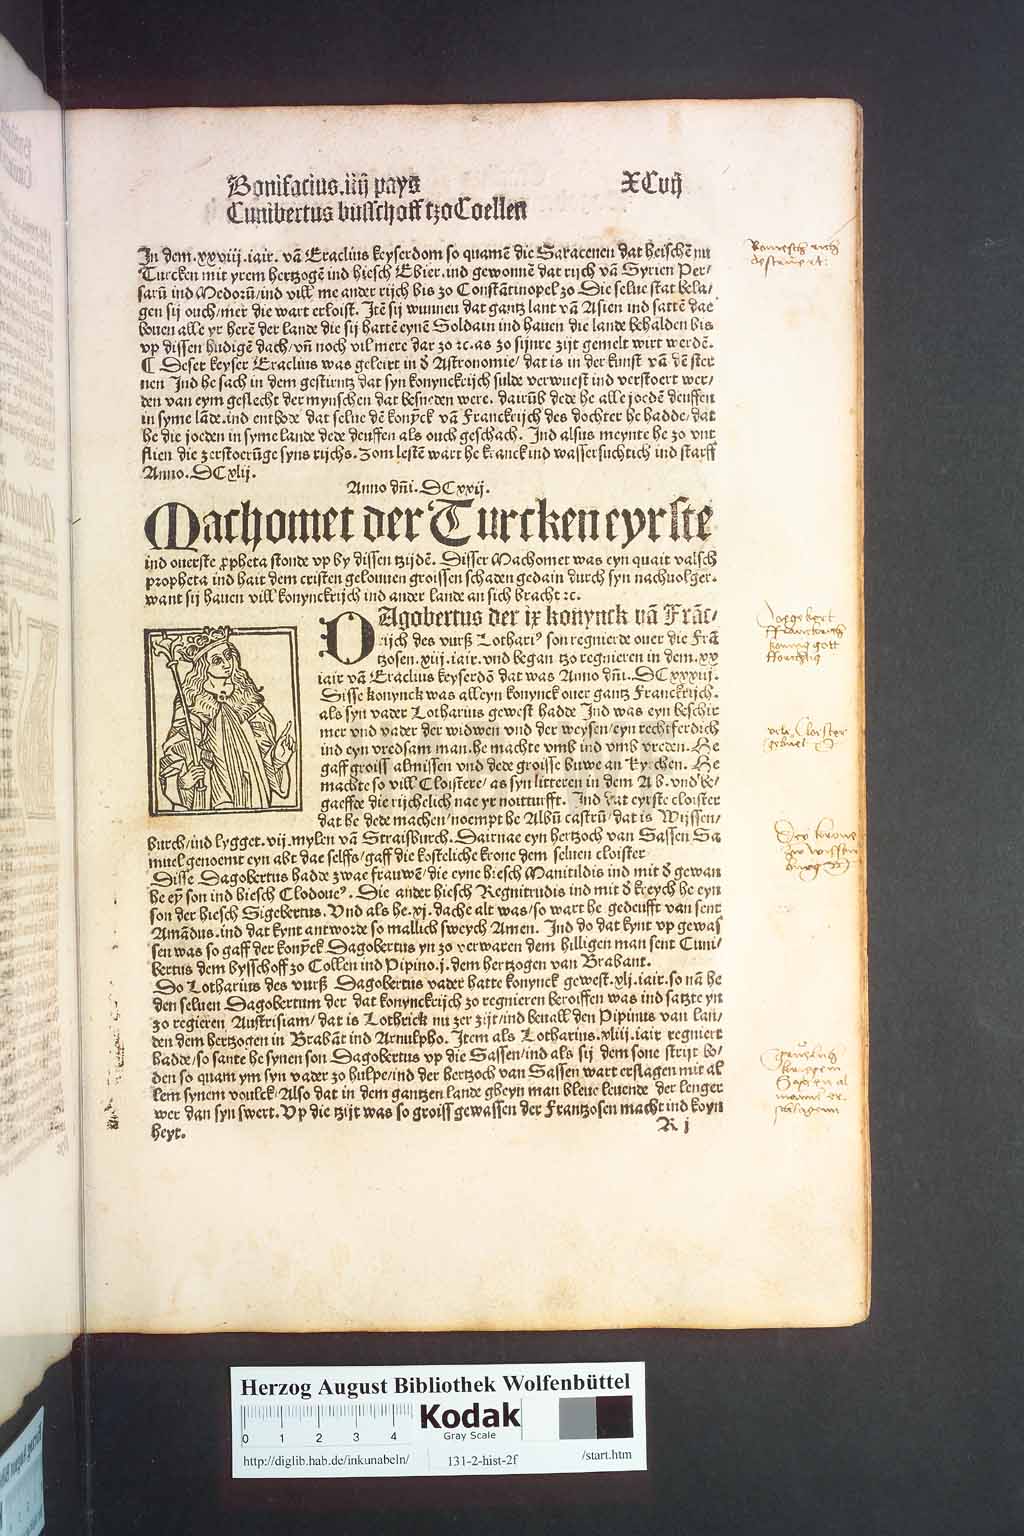 Bonifacius.iiij pays XCvij
Cunibertus busschoff tzo Coellen
In dem.xxviij.iair. vā Eraclius keyserdom so quamē die Saracenen dat heischē nu
Turcken mit yrem hertzogē ind hiesch Ebier.ind gewonnē dat rijch vā Syrien Per/
sarū ind Medorū/ind vill me ander rijch bis zo Constātinopel zo Die selue stat bela/
gen sij ouch/mer die wart erloist. Itē sij wunnen dat gantz lant vā Asien ind sattē dae
bouen alle yr herē der lande die sij hattē eynē Soldain ind hauen die lande behalden bis
vp dissen hudigē dach/vñ noch vil mere dar zo ⁊c.as zo sijnre zijt gemelt wirt werdē.
¶ Deser keyser Eraclius was geleirt in đ Astronomie/ dat is in der kunst vā dē ster
nen Ind he sach in dem gestirntz dat syn konynckrijch sulde verwuest ind verstoert wer/
den van eym geslecht der mynschen dat besneden were. darūb dede he alle joedē deuffen
in syme lāde.ind entbode dat selue dē konyck vā Franckrijch des dochter he hadde/dat
he die joeden in syme lande dede deuffen als ouch geschach. Ind alsus meynte he zo vnt
flien die zerstoerūge syns rijchs. Zom lestē wart he kranck ind wassersuchtich ind starff
Anno.DCxlij.
Anno dñi.DCxxij.
Machomet der Turcken eyrste
ind ouerste ꝓpheta stonde vp by dissen tzijdē. Disser Machomet was eyn quait valsch
propheta ind hait dem cristen gelouuen groissen schaden gedain durch syn nachuolger.
want sij hauen vill konynckrijch ind ander lande an sich bracht ⁊c.
DAgobertus der ix konynck vā Frāc/
rijch des vurß Lothariꝰ son regnierde ouer die Frā
tzosen.xiij.iair.vnd began tzo regnieren in dem.xx
iair vā Eraclius keyserdō dat was Anno dñi.DCxxxiij.
Disse konynck was alleyn konynck ouer gantz Franckrijch.
als syn vader Lotharius gewest hadde Ind was eyn beschir
mer vnd vader der widwen vnd der weysen/eyn rechtferdich
ind eyn vredsam man.he machte vmb ind vmb vreden. He
gaff groiss almissen vnd dede groisse buwe an kyrchen. He
machte so vill Cloistere/ as syn litteren in dem A b.vnd be/
gaeffde die rijchelich nae yr noitturfft. Ind dat eyrste cloister
dat he dede machen/noempt he Albū castrū/dat is Wijssen/
burch/ind lygget.vij.mylen vā Straisburch.Dairnae eyn hertzoch van Sassen Sa
muel genoemt eyn abt dae selffs/gaff die kosteliche krone dem seluen cloister
Disse Dagobertus hadde zwae frauwē/die eyne hiesch Manitildis ind mit đ gewan
he eyn son ind hiesch Clodoueꝰ. Die ander hiesch Regnitrudis ind mit đ kreych he eyn
son der hiesch Sigebertus. Vnd als he.xj.dache alt was/so wart he gedeufft van sent
Amādus.ind dat kynt antworde so mallich sweych Amen. Ind do dat kynt vp gewas
sen was so gaff der konyck Dagobertus yn zo verwaren dem hilligen man sent Cuni/
bertus dem bysschoff zo Collen ind Pipino.j.dem hertzogen van Brabant.
Do Lotharius des vurß Dagobertus vader hatte konynck gewest.xlj.iair.so nā he
den seluen Dagobertum der dat konynckrijch zo regnieren beroiffen was ind satzte yn
zo regieren Austrisiam/dat is Lothrick nu zer zijt/ind beuall den Pipinus van lan/
den dem hertzogen in Brabāt ind Arnulpho. Item als Lotharius.xliii.iair regniert
hadde/so sante he synen son Dagobertus vp die Sassen/ind als sij dem sone strijt bo/
den so quam ym syn vader zo hulpe/ind der hertzoch van Sassen wart erslagen mit al
lem synem voulck/Also dat in dem gantzen lande gheyn man bleue leuende der lenger
wer dan syn swert.Vp die tzijt was so groiss gewassen der Frantzosen macht ind koyn
heyt. R j
Dagobert
Franckreich
konnig gott
forchtig
vele Cloister
gebuet
Die krone
zu wissen
burg
Herzog August Bibliothek Wolfenbüttel
0 1 2 3 4
Kodak
Gray Scale
http://diglib.hab.de/inkunabeln/ 131-2-hist-2f /start.htm